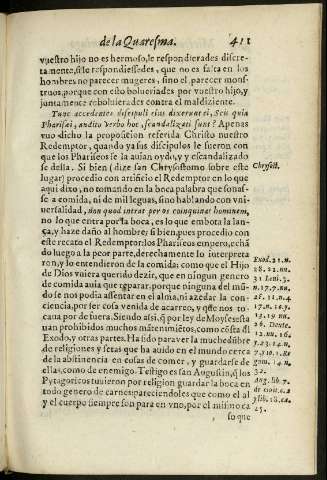 de la Quaresma. 411
vuestro hijo no es hermoso, le respondierades discre-
tamente, si le respondiessedes, que no es falta en los
hombres no parecer mugeres, sino el parecer mons-
truos, porque con esto bolueriades por vuestro hijo, y
juntamente rebolvierades contra el maldiziente.
Tunc accedentes discipuli eius dixerunt ei, Scis quia
Pharisæi, audito verbo hoc, scandalizati sunt? Apenas
vuo dicho la proposicion referida Christo nuestro
Redemptor, quando ya sus dicipulos le fueron con
que los Phariseos se la auian oydo, y escandalizado
se della. Si bien (dize san Chrysostomo sobre este
Chrysost.
lugar) procedio con artificio el Redemptor en lo que
aqui dixo, no tomando en la boca palabra que sonas-
se a comida, ni de mil leguas, sino hablando con vni-
uersalidad, non quod intrat per os coinquinat hominem,
no lo que entra por la boca, es lo que embota la lan-
ça, y haze daño al hombre; si bien, pues procedio con
este recato el Redemptor: los Phariseos empero, echã
do luego a la peor parte, derechamente lo interpreta
ron, y lo entendieron de la comida: como que el Hijo
de Dios vuiera querido dezir, que en ningun genero
de comida auia que reparar, porque ninguna del mũ-
do se nos podia assentar en el alma, ni azedar la con-
ciencia, por ser cosa venida de acarreo, y que nos to-
caua por de fuera. Siendo assi, q̃ por ley de Moyses esta
uan prohibidos muchos mãtenimiẽtos, como cõsta dl
Exodo, y otras partes. Ha sido para ver la muchedũbre
de religiones y setas que ha auido en el mundo cerca
de la abstinencia en cosas de comer, y guardarse de
ellas, como de enemigo. Testigo es san Augustin, q̃ los
Pytagoricos tuuieron por religion guardar la boca en
todo genero de carnes: pareciendoles que como el al
y el cuerpo siempre son para en vno, por el mismo ca
so que
Exod. 21. n.
28. 22. nu.
31. Leui. 3.
n. 17. 7. nu.
26. 11. n. 4.
17. n. 10. 5.
13. 19. nu.
26. Deute.
12. nu. 16.
23. 14. n.
7. 3 10. 1. Re
gum. 14. n.
32.
Aug. lib. 7.
de ciuit. c. 2
25.